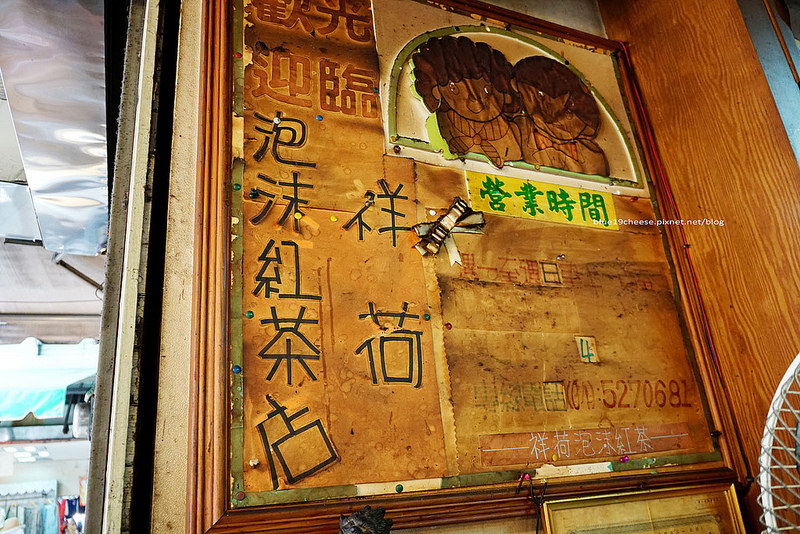 歡迎光臨
祥荷
泡沫紅茶店
營業時間
日
4
5270681
祥荷泡沫紅茶
blue19cheese.pixnet.net/blog